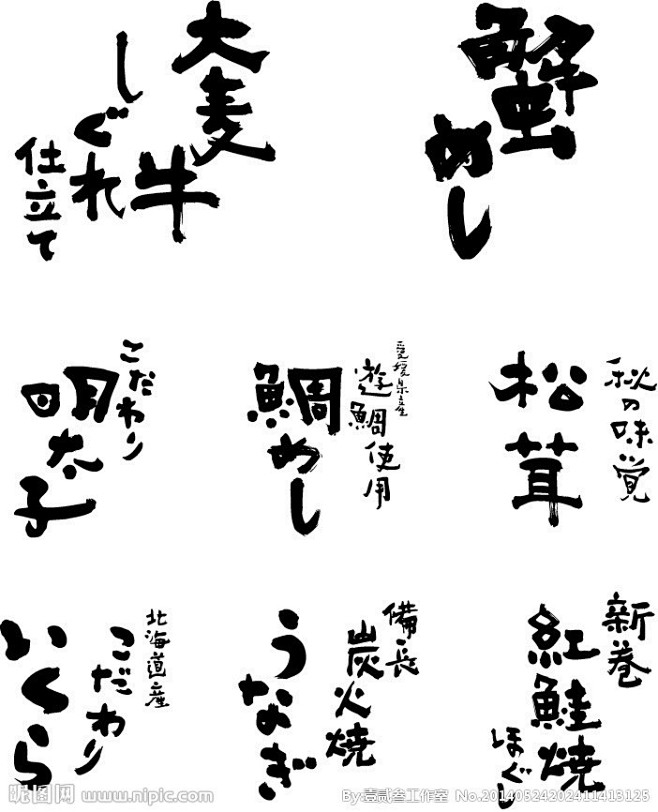 大麦牛
しぐれ
仕立て
蟹めし
こだわり
明太子
愛媛県産
遊鯛使用
鯛めし
秋の味覚
松茸
北海道産
こだわり
いくら
備長
炭火焼
うなぎ
新巻
紅鮭焼
ほぐし
昵图网 www.nipic.com
By:壹贰叁工作室 No.20140524202411413125